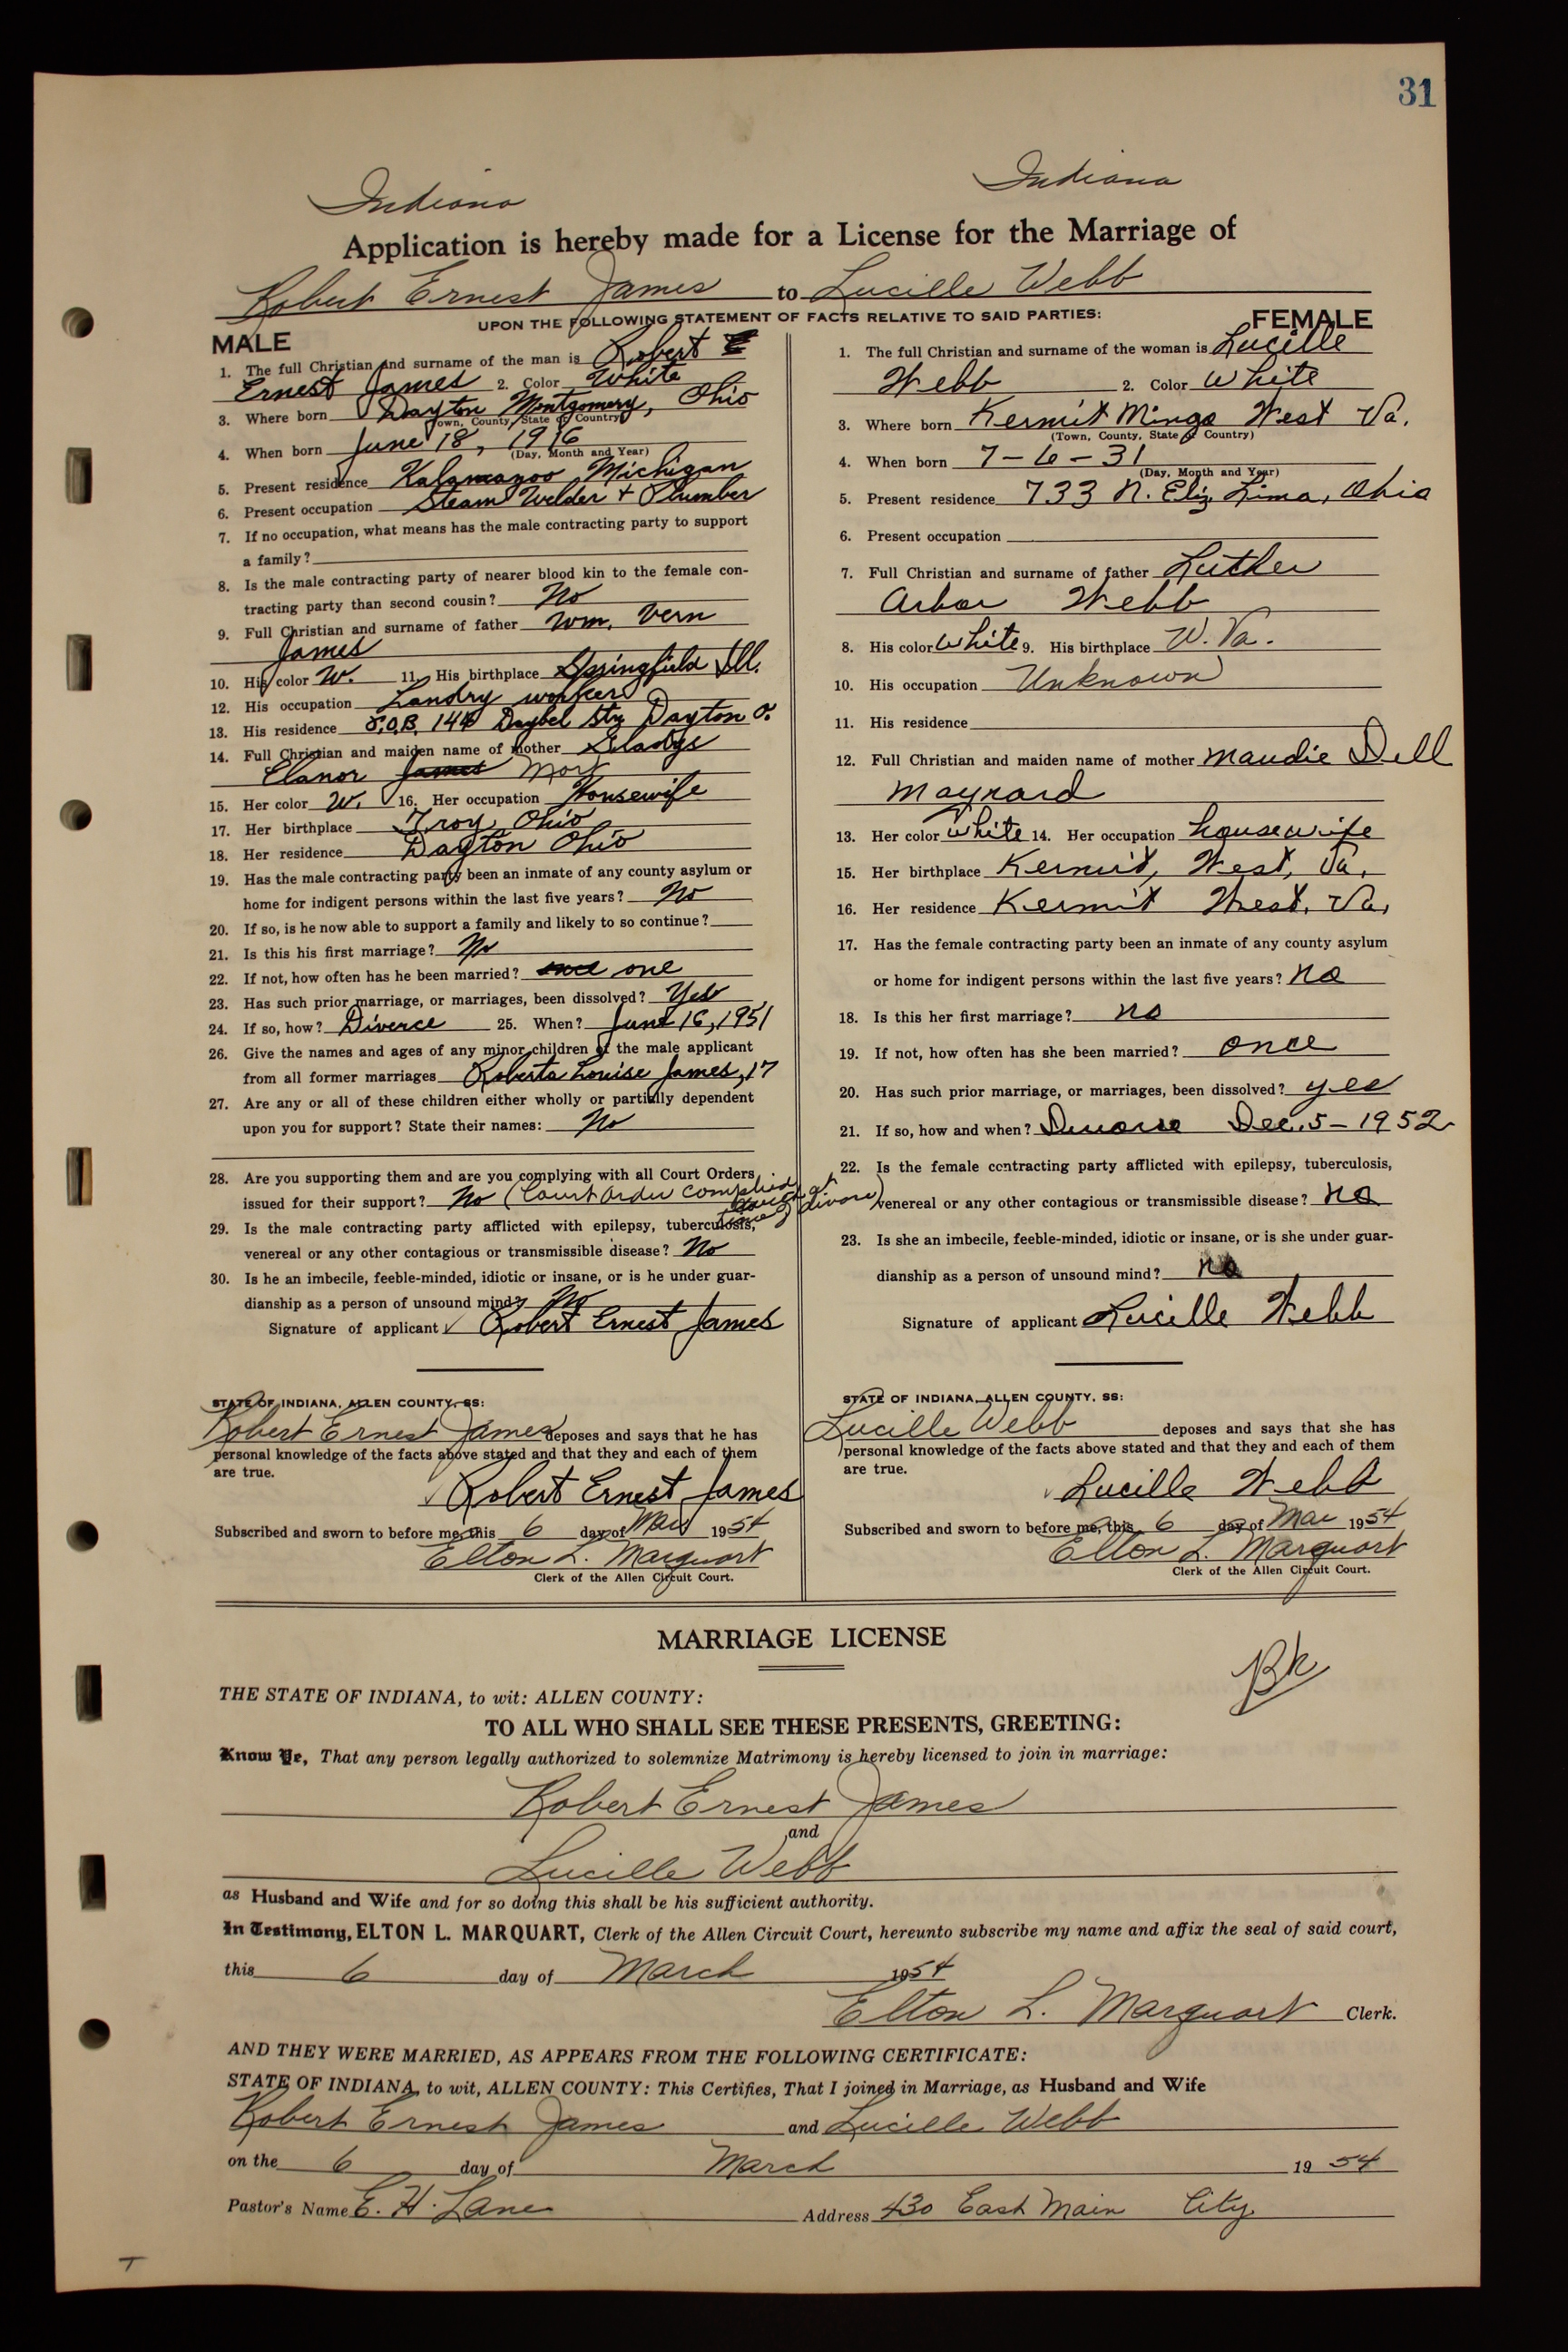 31
Indiana Indiana
Application is hereby made for a License for the Marriage of
Robert Ernest James to Lucille Webb
UPON THE FOLLOWING STATEMENT OF FACTS RELATIVE TO SAID PARTIES:
MALE
1. The full Christian and surname of the man is Robert
Ernest James 2. Color White
3. Where born Dayton Montgomery, Ohio
(Town, County, State or Country)
4. When born June 18, 1916
(Day, Month and Year)
5. Present residence Kalamazoo, Michigan
6. Present occupation Steam Welder + Plumber
7. If no occupation, what means has the male contracting party to support
a family?
8. Is the male contracting party of nearer blood kin to the female con-
tracting party than second cousin? No
9. Full Christian and surname of father Wm. Vern
James
10. His color W. 11. His birthplace Springfield Ill.
12. His occupation Landry worker
13. His residence 144 Str Dayton O.
14. Full Christian and maiden name of mother Gladys
Elanor James
15. Her color W. 16. Her occupation Housewife
17. Her birthplace Troy, Ohio
18. Her residence Dayton Ohio
19. Has the male contracting party been an inmate of any county asylum or
home for indigent persons within the last five years? No
20. If so, is he now able to support a family and likely to so continue?
21. Is this his first marriage? No
22. If not, how often has he been married? once one
23. Has such prior marriage, or marriages, been dissolved? Yes
24. If so, how? Diverce 25. When? June 16, 1951
26. Give the names and ages of any minor children of the male applicant
from all former marriages Roberta Louise James, 17
27. Are any or all of these children either wholly or partially dependent
upon you for support? State their names: No
28. Are you supporting them and are you complying with all Court Orders
issued for their support? No (Court order complied at time of divorce)
29. Is the male contracting party afflicted with epilepsy, tuberculosis,
venereal or any other contagious or transmissible disease? No
30. Is he an imbecile, feeble-minded, idiotic or insane, or is he under guar-
dianship as a person of unsound mind? No
Signature of applicant Robert Ernest James
STATE OF INDIANA, ALLEN COUNTY, SS:
Robert Ernest James deposes and says that he has
personal knowledge of the facts above stated and that they and each of them
are true.
Robert Ernest James
Subscribed and sworn to before me, this 6 day of Mar 1954
Elton L. Marquart
Clerk of the Allen Circuit Court.
FEMALE
1. The full Christian and surname of the woman is Lucille
Webb 2. Color White
3. Where born Kermit Mingo West Va.
(Town, County, State or Country)
4. When born 7-6-31
(Day, Month and Year)
5. Present residence 733 N. Eliz. Lima, Ohio
6. Present occupation
7. Full Christian and surname of father Luther
Arbor Webb
8. His color white 9. His birthplace W. Va.
10. His occupation Unknown
11. His residence
12. Full Christian and maiden name of mother Maudie Dell
Maynard
13. Her color white 14. Her occupation housewife
15. Her birthplace Kermit, West, Va.
16. Her residence Kermit West, Va,
17. Has the female contracting party been an inmate of any county asylum
or home for indigent persons within the last five years? no
18. Is this her first marriage? no
19. If not, how often has she been married? once
20. Has such prior marriage, or marriages, been dissolved? yes
21. If so, how and when? Divorse Dec. 5-1952
22. Is the female contracting party afflicted with epilepsy, tuberculosis,
venereal or any other contagious or transmissible disease? no
23. Is she an imbecile, feeble-minded, idiotic or insane, or is she under guar-
dianship as a person of unsound mind? no
Signature of applicant Lucille Webb
STATE OF INDIANA, ALLEN COUNTY, SS:
Lucille Webb deposes and says that she has
personal knowledge of the facts above stated and that they and each of them
are true.
Lucille Webb
Subscribed and sworn to before me, this 6 day of Mar 1954
Elton L. Marquart
Clerk of the Allen Circuit Court.
MARRIAGE LICENSE
Bk
THE STATE OF INDIANA, to wit: ALLEN COUNTY:
TO ALL WHO SHALL SEE THESE PRESENTS, GREETING:
Know Ye, That any person legally authorized to solemnize Matrimony is hereby licensed to join in marriage:
Robert Ernest James
and
Lucille Webb
as Husband and Wife and for so doing this shall be his sufficient authority.
In Testimony, ELTON L. MARQUART, Clerk of the Allen Circuit Court, hereunto subscribe my name and affix the seal of said court,
this 6 day of March 1954
Elton L. Marquart Clerk.
AND THEY WERE MARRIED, AS APPEARS FROM THE FOLLOWING CERTIFICATE:
STATE OF INDIANA, to wit, ALLEN COUNTY: This Certifies, That I joined in Marriage, as Husband and Wife
Robert Ernest James and Lucille Webb
on the 6 day of March 1954
Pastor's Name E. H. Lane Address 430 East Main City